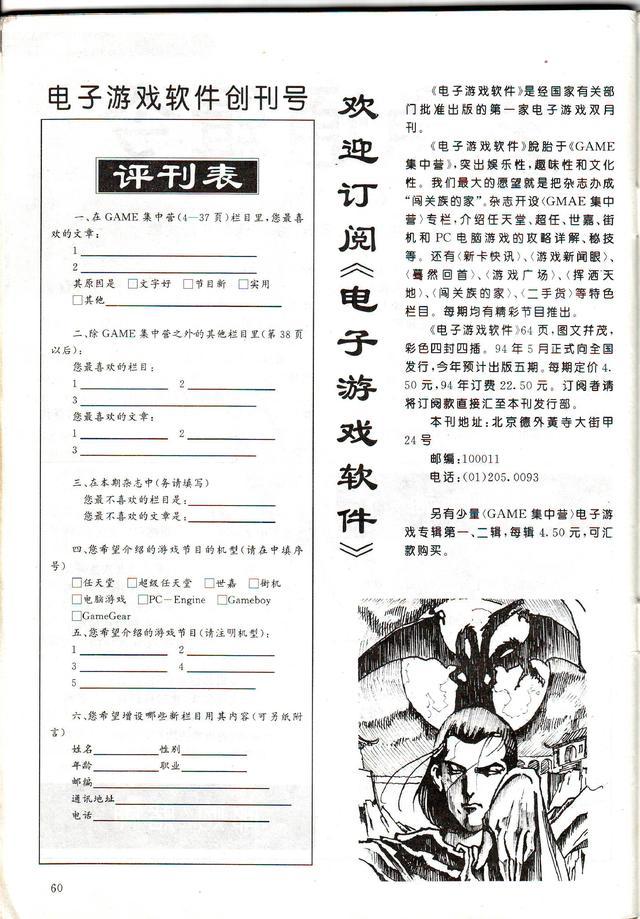 电子游戏软件创刊号
评刊表
一、在GAME集中营(4—37页)栏目里,您最喜
欢的文章:
1
2
其原因是 □文字好 □节目新 □实用
□其他
二、除GAME集中营之外的其他栏目里(第38页
以后):
您最喜欢的栏目:
1 2
3
您最喜欢的文章:
1 2
3
三、在本期杂志中(务请填写)
您最不喜欢的栏目是:
您最不喜欢的文章是:
四、您希望介绍的游戏节目的机型(请在中填序
号)
□任天堂 □超级任天堂 □世嘉 □街机
□电脑游戏 □PC－Engine □Gameboy
□GameGear
五、您希望介绍的游戏节目(请注明机型):
1 2
3 4
5
六、您希望增设哪些新栏目用其内容(可另纸附
言)
姓名 性别
年龄 职业
邮编
通讯地址
电话
60
欢迎订阅《电子游戏软件》
《电子游戏软件》是经国家有关部
门批准出版的第一家电子游戏双月
刊。
《电子游戏软件》脱胎于《GAME
集中营》,突出娱乐性,趣味性和文化
性。我们最大的愿望就是把杂志办成
“闯关族的家”。杂志开设〈GMAE集中
营〉专栏,介绍任天堂、超任、世嘉、街
机和PC电脑游戏的攻略详解、秘技
等。还有〈新卡快讯〉、〈游戏新闻眼〉、
〈蓦然回首〉、〈游戏广场〉、〈挥洒天
地〉、〈闯关族的家〉、〈二手货〉等特色
栏目。每期均有精彩节目推出。
《电子游戏软件》64页,图文并茂,
彩色四封四插。94年5月正式向全国
发行,今年预计出版五期。每期定价4.
50元,94年订费22.50元。订阅者请
将订阅款直接汇至本刊发行部。
本刊地址:北京德外黄寺大街甲
24号
邮编:100011
电话:(01)205.0093
另有少量〈GAME集中营〉电子游
戏专辑第一、二辑,每辑4.50元,可汇
款购买。